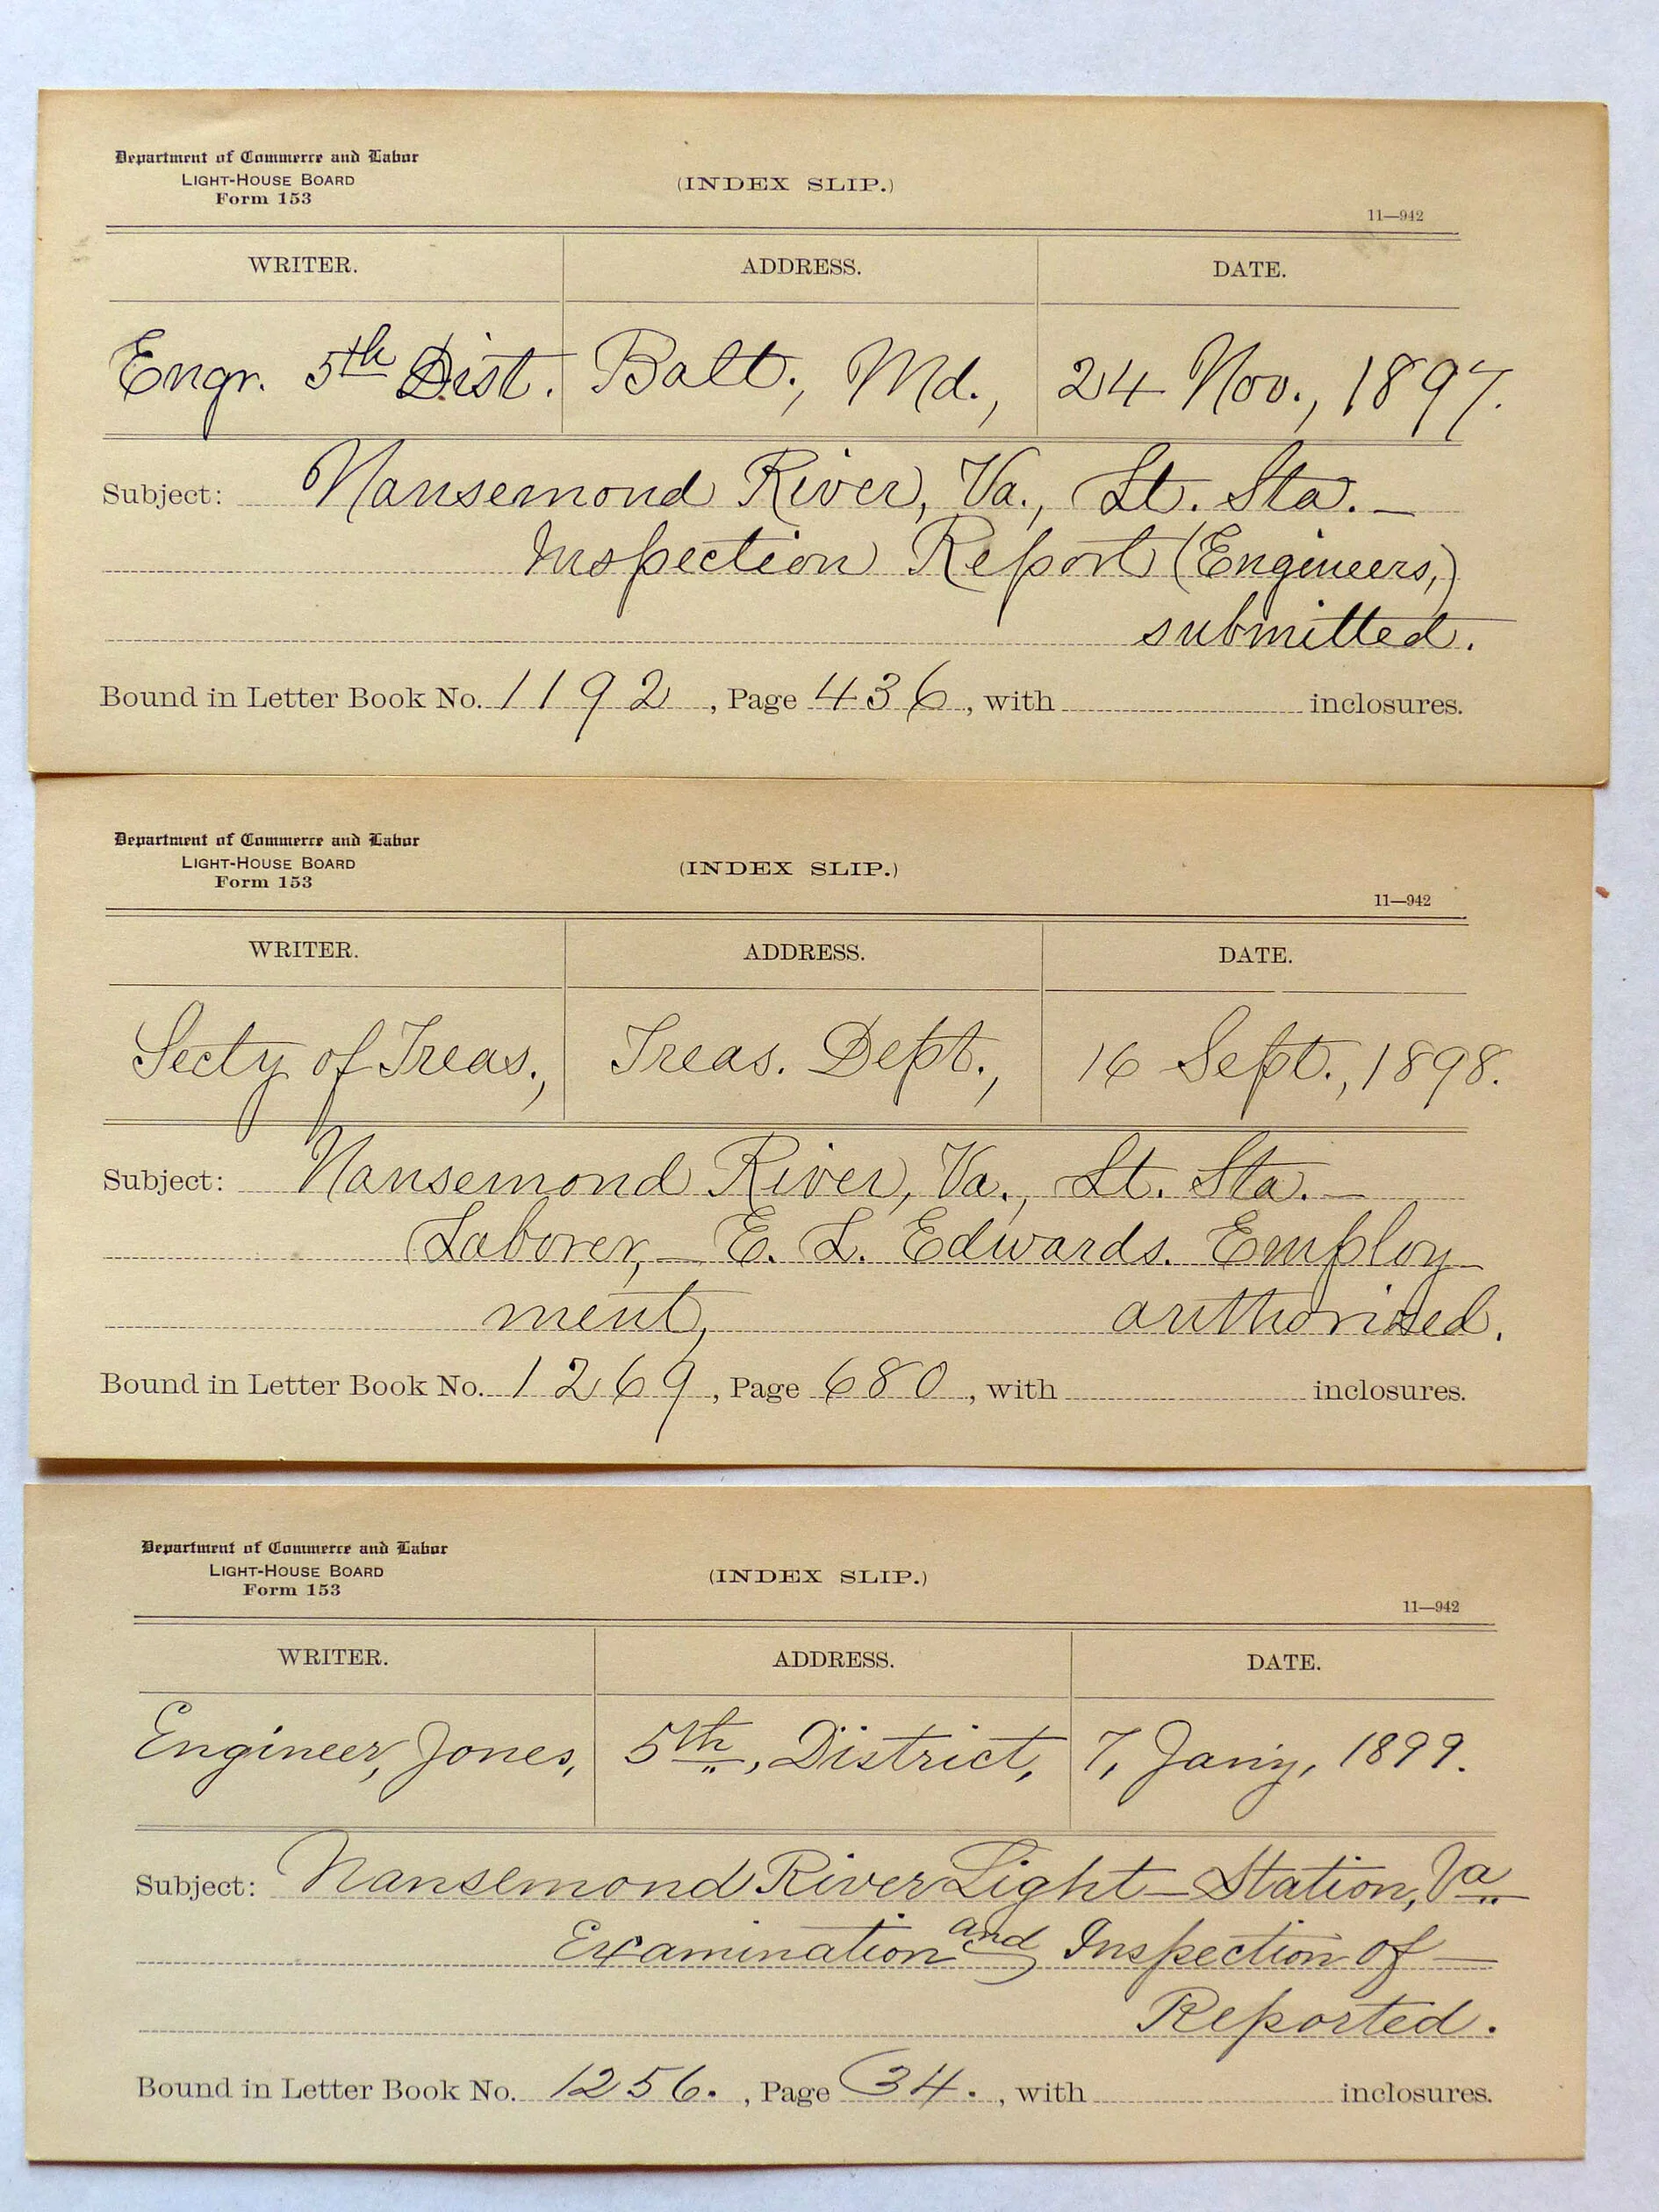 Department of Commerce and Labor
LIGHT-HOUSE BOARD
Form 153
(INDEX SLIP.)
11—942
WRITER. ADDRESS. DATE.
Engr. 5th Dist. Balt., Md., 24 Nov., 1897.
Subject: Nansemond River, Va., Lt. Sta. —
Inspection Report (Engineers,)
submitted.
Bound in Letter Book No. 1192, Page 436, with inclosures.
Department of Commerce and Labor
LIGHT-HOUSE BOARD
Form 153
(INDEX SLIP.)
11—942
WRITER. ADDRESS. DATE.
Secty of Treas., Treas. Dept., 16 Sept., 1898.
Subject: Nansemond River, Va., Lt. Sta. —
Laborer, — E. L. Edwards. Employ-
ment, authorized.
Bound in Letter Book No. 1269, Page 680, with inclosures.
Department of Commerce and Labor
LIGHT-HOUSE BOARD
Form 153
(INDEX SLIP.)
11—942
WRITER. ADDRESS. DATE.
Engineer, Jones, 5th, District, 7, Jany, 1899.
Subject: Nansemond River Light-Station, Va
Examination and Inspection of —
Reported.
Bound in Letter Book No. 1256. , Page 34. , with inclosures.